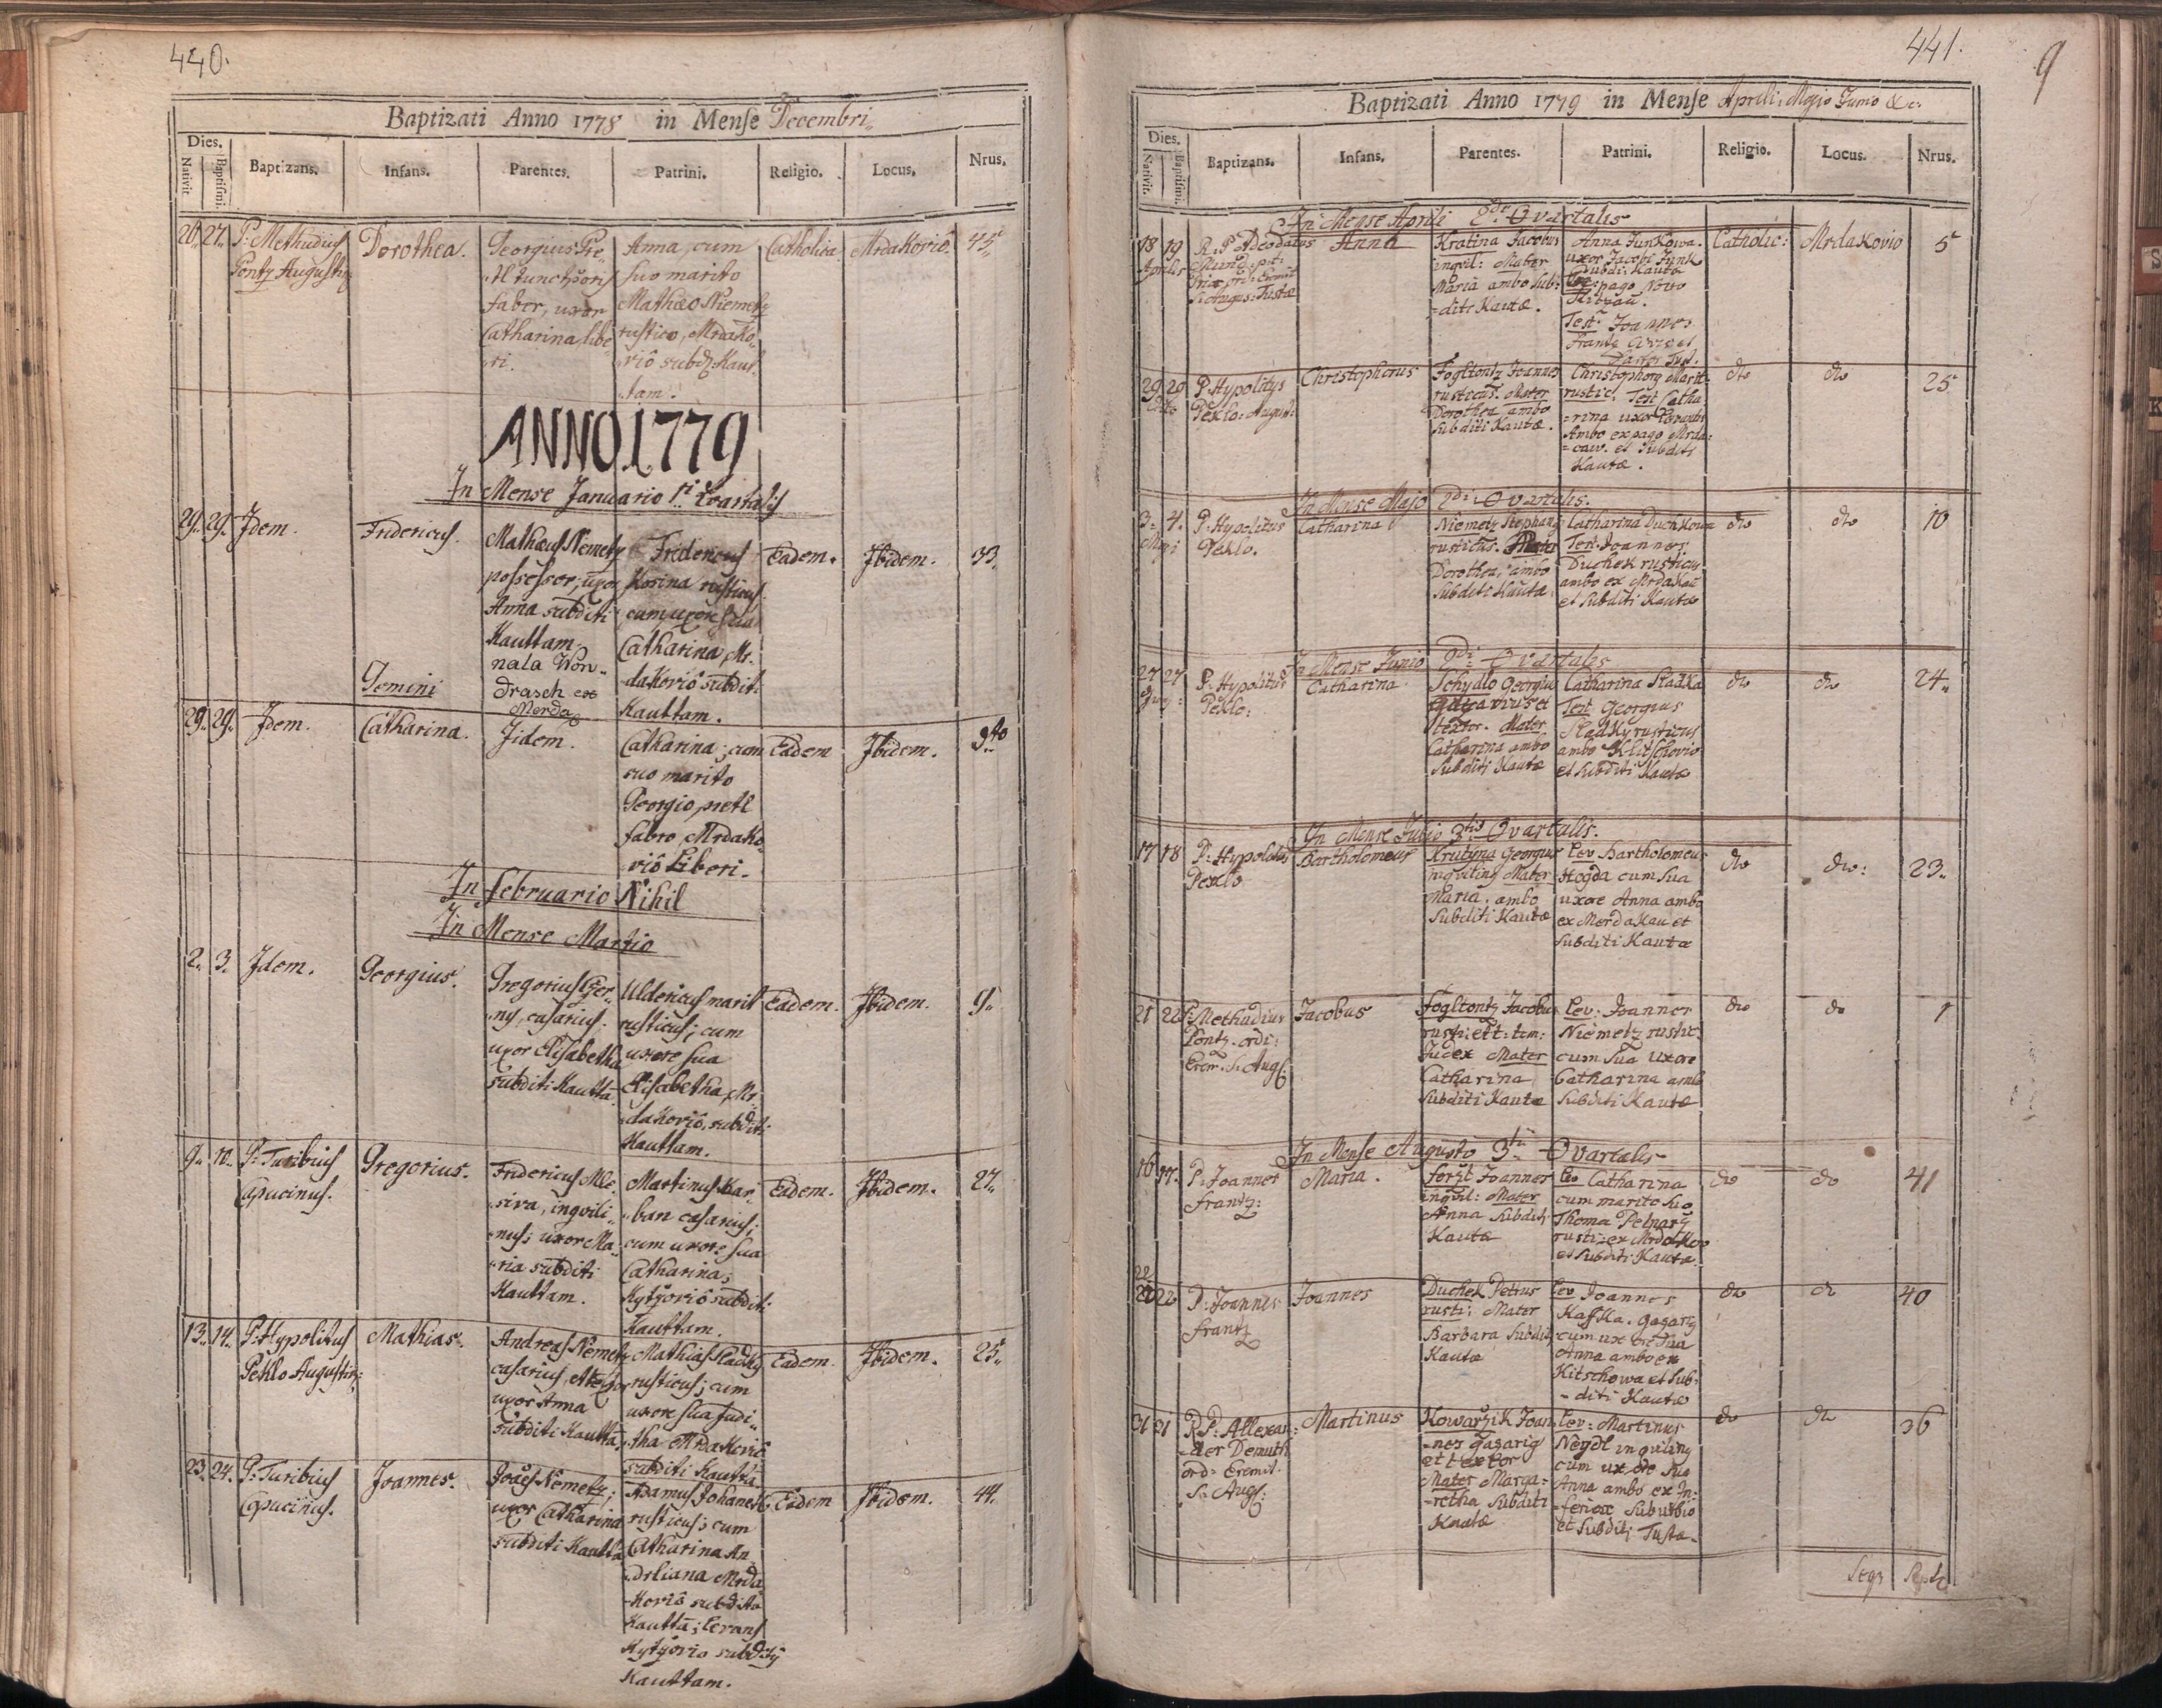 440.
Baptizati Anno 1778 in Mense Decembri
Dies.
Nativit
Baptismi.
Baptizans.
Infans.
Parentes.
Patrini.
Religio.
Locus.
Nrus.
26. 27. P: Methudius
Pontz Augusti
Dorothea.
Georgius Pre-
faber, uxor
Catharina, libe-
ri.
Anna, cum
suo marito
Mathæo Niemetz
rustico, Mrdako-
viô subd: Kaut-
tam.
Catholica
Mrdakoviô.
45
ANNO 1779
In Mense Januario 1mi Quartalis
29. 29. Idem.
Fridericus.
Gemini
Mathæus Nemetz
possessor, uxor
Anna subditi
Kauttam,
nata Won-
drasch ex
Merda
Fridericus
Kosina rusticus
cum uxore sua
Catharina, Mr-
dakoviô subditi
Kauttam.
Eadem.
Ibidem.
33.
29. 29. Idem.
Catharina.
Iidem.
Catharina; cum
suo marito
Georgio pretl
fabro, Mrdako-
viô Liberi.
Eadem
Ibidem.
9no
In februario Nihil
In Mense Martio
2. 3. Idem.
Georgius.
Gregorius Czer-
ny, casarius.
uxor Elisabetha
subditi Kauttã
Uldericus marit
rusticus; cum
uxore sua
Elisabetha, Mr-
dakoviô, subditi
Kauttam.
Eadem.
Ibidem.
9.
9. 10. P: Turibius
Capucinus.
Gregorius.
Fridericus Mle-
siva, inqvili-
nus; uxor Ma-
ria subditi
Kauttam.
Martinus Kar-
ban casarius;
cum uxore sua
Catharina;
Kytzoviô subditi
Kauttam.
Eadem.
Ibidem.
27.
13. 14. P: Hypolitus
Peklo Augustin:
Mathias.
Andreas Nemetz
casarius, et textor
uxor Anna
subditi Kauttã
Mathias Sladky
rusticus; cum
uxore sua Judi-
tha Mrdakoviô
subditi Kauttã
Eadem.
Ibidem.
25.
23. 24. P: Turibius
Capucinus.
Joannes.
Joães Nemetz;
uxor Catharina
subditi Kauttã
Adamus Johanek
rusticus; cum
Catharina An-
drliana Mrda-
koviô subdita
Kauttã; Levans
Kytzovio subditi
Kauttam.
Eadem
Ibidem.
44.
441.
9
Baptizati Anno 1779 in Mense Aprili, Majo Junio &c:
Dies.
Nativit.
Baptismi.
Baptizans.
Infans.
Parentes.
Patrini.
Religio.
Locus.
Nrus.
In Mense Aprili 2di Qvartalis
18 19
Aprilis
R: P Adeodatus
ord: Eremit
S: Augus: Tustæ
Anna
Kratina Jacobus
inqvil: Mater
Maria ambo Sub:
=diti Kautæ.
Anna Junkowa.
uxor Jacobi Junk
Subdi: Kautæ
ex pago Novo
Testes Joannes
Frantz Civis et
Sartor Tust.
Catholic:
Mrdakovio
5
29 29
P: Hypolitus
Peklo: August:
Christophorus
Fogltontz Joannes
rusticus. Mater
Dorothea ambo
Subditi Kautæ.
Christophorg Marit
rustic, Test Catha
=rina uxor
Ambo ex pago Mrda:
=caw. et Subditi
Kautæ.
dto
dto
25
In Mense Majo 2di Qvartalis.
3. 4.
Maji
P: Hypolitus
Peklo.
Catharina
Niemetz Stephang
rusticus. Mater
Dorothea, ambo
Subditi Kautæ
Catharina Duchkowa
Test. Joannes
Duchek rusticus
ambo ex Mrdakau
et Subditi Kautæ
dto
dto
10
In Mense Junio 2di Qvartalis
27 27
P: Hypolitus
Peklo:
Catharina
Schydlo Georgius
textor. Mater
Catharina ambo
Subditi Kautæ
Catharina Sladka
Test Georgius
Sladky rusticus
ambo Kitschovio
et Subditi Kautæ
dto
dto
24.
In Mense Julio 3tii Qvartalis.
17 18
P: Hypolitus
Peklo
Bartholomeus
Krutina Georgius
inqvilinus Mater
Maria, ambo
Subditi Kautæ
Lev. Bartholomeus
Hogda cum sua
uxore Anna ambo
ex Merdakau et
Subditi Kautæ
dto
dto:
23.
21 22
P: Methudius
Pontz. ordi:
Erem. S. Aug:
Jacobus
Fogltontz Jacobus
rusti: ett: tem:
Judex Mater
Catharina
Subditi Kautæ
Lev: Joannes
Niemetz rustic:
cum sua uxore
Catharina ambo
Subditi Kautæ
dto
do
1
In Mense Augusto 3tii Qvartalis
16 17.
P: Joannes
Frantz:
Maria.
Forst Joannes
inqvil: Mater
Anna Subditi
Kautæ
Lev Catharina
cum marito Suo
Thoma Pelnarz
rusti: ex Mrdakov
et Subditi Kautæ
dto
do
41
22
22 22
P: Joannes
Frantz
Joannes
Duchek Petrus
rusti: Mater
Barbara Subditi
Kautæ
Lev Joannes
Kaffka. Gazarig
cum uxore sua
Anna ambo ex
Kitschowa et Sub-
-diti Kautæ
dto
do
40
31 31
R P: Allexan:
-der Demuth
ord: Eremit.
S: Aug:
Martinus
Kowarzik Joan
=nes gazarig
et textor
Mater Marga:
=retha Subditi
Kautæ
Lev: Martinus
Neydl inquiling
cum uxore sua
Anna ambo ex In:
=feriore Suburbio
et Subditi Tustæ.
dto
do
36